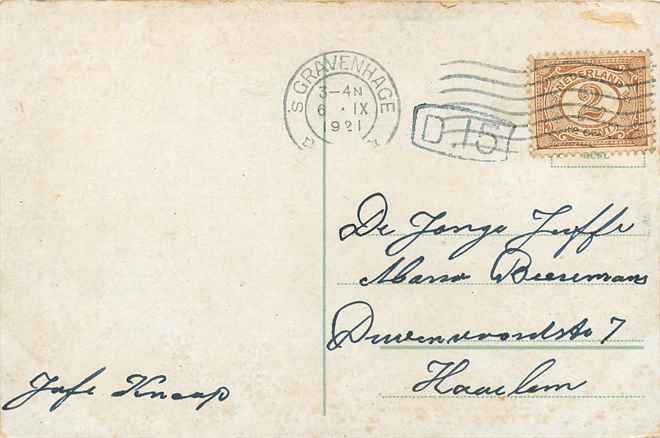 'S GRAVENHAGE
3-4N
6 . IX
1921
D.15
NEDERLAND
2
CENT
De Jonge Juffr
Beeremans
Duvenvoordestr 7
Haarlem
Jofr Knaap